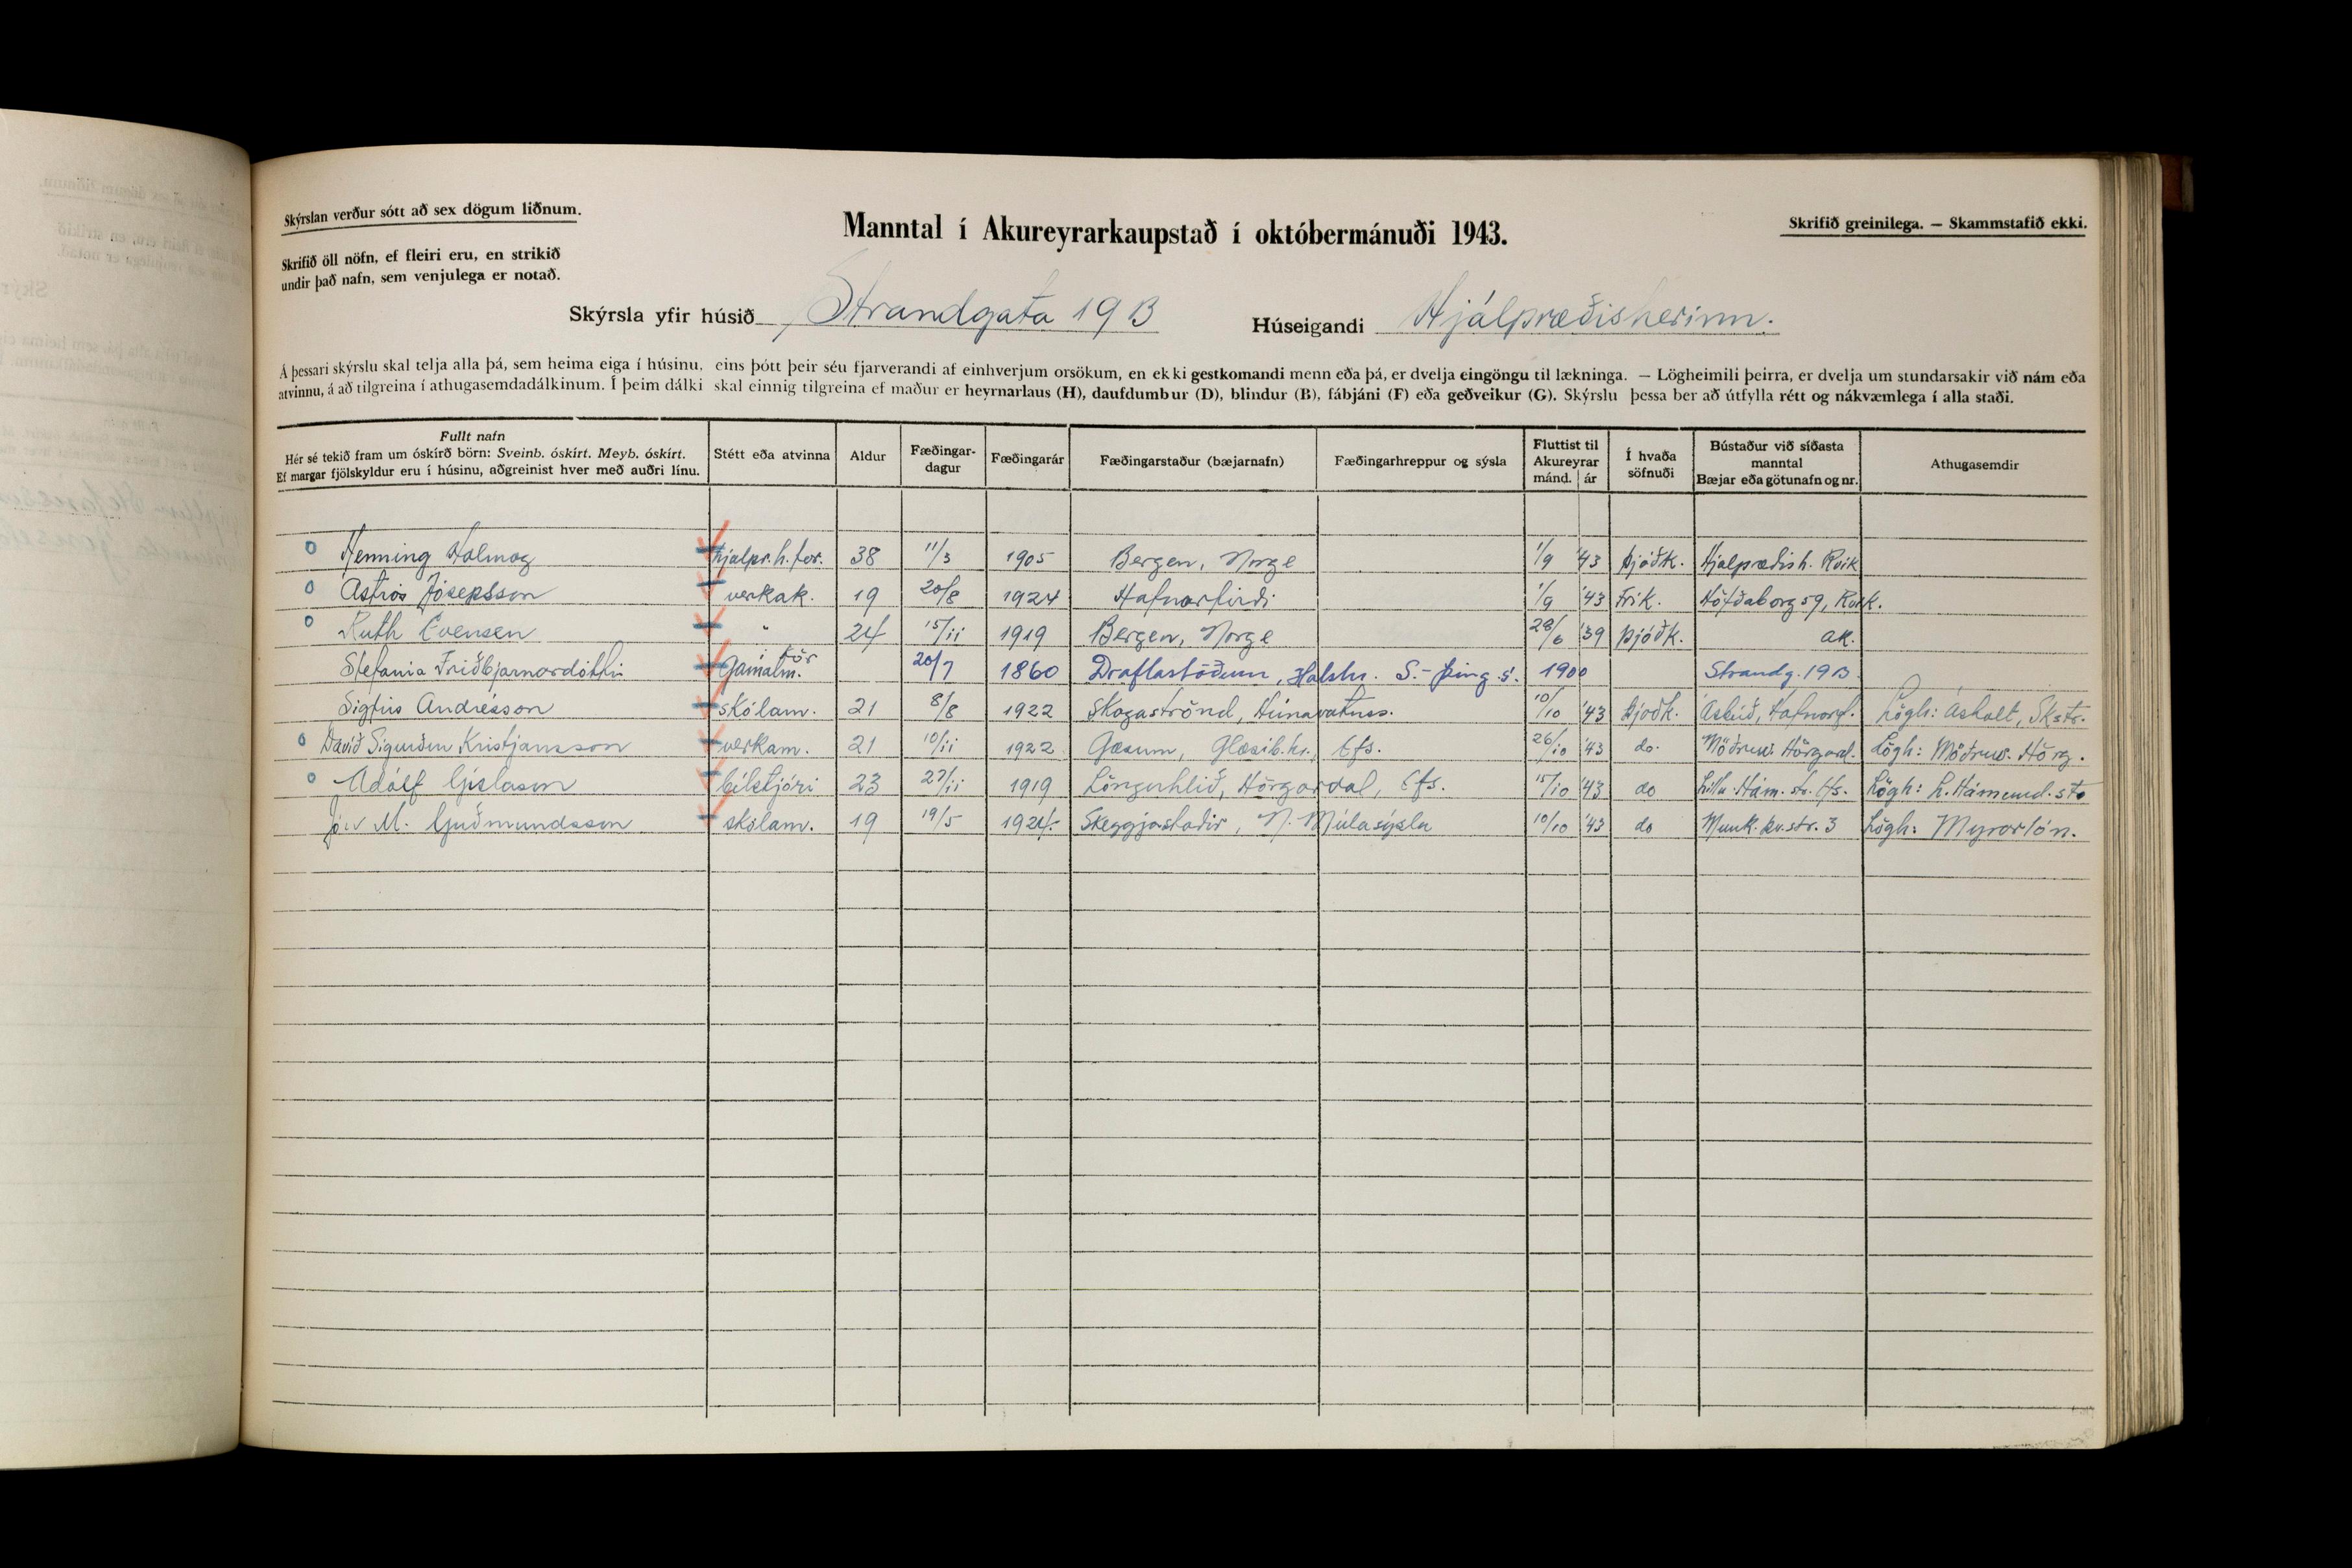 Skýrslan verður sótt að sex dögum liðnum.
Manntal í Akureyrarkaupstað í októbermánuði 1943.
Skrifið greinilega. — Skammstafið ekki.
Skrifið öll nöfn, ef fleiri eru, en strikið
undir það nafn, sem venjulega er notað.
Skýrsla yfir húsið Strandgata 19 B Húseigandi Hjálpræðisherinn.
Á þessari skýrslu skal telja alla þá, sem heima eiga í húsinu, eins þótt þeir séu fjarverandi af einhverjum orsökum, en ekki gestkomandi menn eða þá, er dvelja eingöngu til lækninga. — Lögheimili þeirra, er dvelja um stundarsakir við nám eða
atvinnu, á að tilgreina í athugasemdadálkinum. Í þeim dálki skal einnig tilgreina ef maður er heyrnarlaus (H), daufdumbur (D), blindur (B), fábjáni (F) eða geðveikur (G). Skýrslu þessa ber að útfylla rétt og nákvæmlega í alla staði.
Fullt nafn
Hér sé tekið fram um óskírð börn: Sveinb. óskírt. Meyb. óskírt.
Ef margar fjölskyldur eru í húsinu, aðgreinist hver með auðri línu.
Stétt eða atvinna
Aldur
Fæðingar-
dagur
Fæðingarár
Fæðingarstaður (bæjarnafn)
Fæðingarhreppur og sýsla
Fluttist til
Akureyrar
mánd. ár
Í hvaða
söfnuði
Bústaður við síðasta
manntal
Bæjar eða götunafn og nr.
Athugasemdir
Henning Holmog hjalpr.h.for. 38 11/3 1905 Bergen, Norge 1/9 '43 Þjóðk. Hjalprædish. Rvik
Astros Jósepsson verkak. 19 20/8 1924 Hafnarfirði 1/9 '43 Frik. Höfðaborg 59, Rvik.
Ruth Evensen " 24 15/11 1919 Bergen, Norge 28/6 '39 Þjóðk. ak.
Stefania Friðbjarnardóttir Gamalm. 20/7 1860 Draflastöðum, Halshr. S.-Þing.s. 1900 Strandg. 19B
Sigfús Andrésson skólam. 21 8/8 1922 Skagaströnd, Húnavatnss. 10/10 '43 Þjoðk. Ásbúð, Hafnarf. Lögh: Ásholt, Skstr.
Davið Sigurður Kristjansson verkam. 21 10/11 1922 Gæsum, Glæsib.hr., Efs. 26/10 '43 do. Möðruv. Hörgard. Lögh: Möðruv. Hörg.
Adólf Gíslason bílstjóri 23 27/11 1919 Lönguhlið, Hörgardal, Efs. 15/10 '43 do Litlu-Hám. st. Efs. Lögh: L. Hámund. st.
Jón M. Guðmundsson skólam. 19 19/5 1924 Skeggjastaðir, N. Múlasýslu 10/10 '43 do Munk.þv.str. 3 Lögh: Myrarlón.